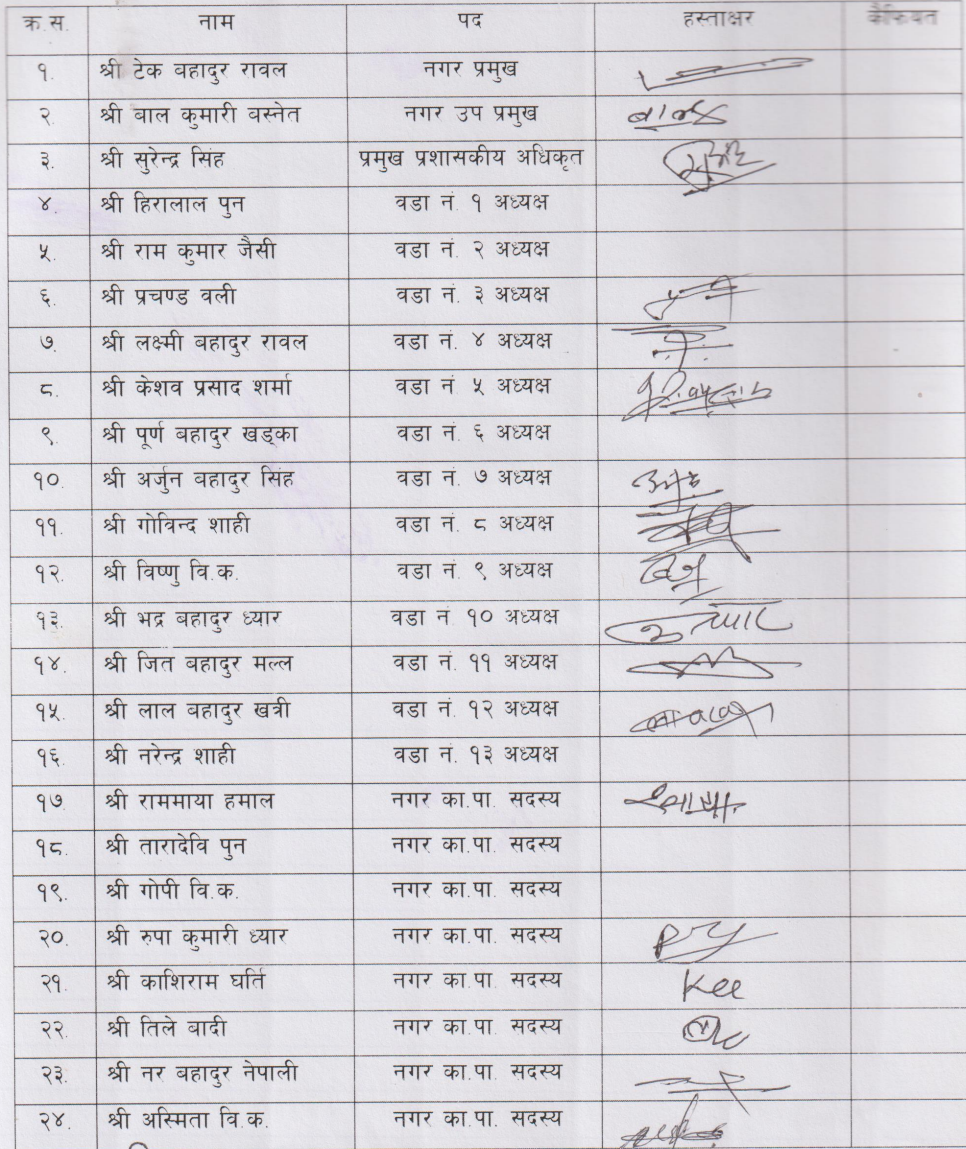 क्र.स. नाम पद हस्ताक्षर कैफियत
१. श्री टेक बहादुर रावल नगर प्रमुख
२. श्री बाल कुमारी वस्नेत नगर उप प्रमुख
३. श्री सुरेन्द्र सिंह प्रमुख प्रशासकीय अधिकृत
४. श्री हिरालाल पुन वडा नं. १ अध्यक्ष
५. श्री राम कुमार जैसी वडा नं. २ अध्यक्ष
६. श्री प्रचण्ड वली वडा नं. ३ अध्यक्ष
७. श्री लक्ष्मी बहादुर रावल वडा नं. ४ अध्यक्ष
८. श्री केशव प्रसाद शर्मा वडा नं. ५ अध्यक्ष
९. श्री पूर्ण बहादुर खड्का वडा नं. ६ अध्यक्ष
१०. श्री अर्जुन बहादुर सिंह वडा नं. ७ अध्यक्ष
११. श्री गोविन्द शाही वडा नं. ८ अध्यक्ष
१२. श्री विष्णु वि.क. वडा नं. ९ अध्यक्ष
१३. श्री भद्र बहादुर ध्यार वडा नं. १० अध्यक्ष
१४. श्री जित बहादुर मल्ल वडा नं. ११ अध्यक्ष
१५. श्री लाल बहादुर खत्री वडा नं. १२ अध्यक्ष
१६. श्री नरेन्द्र शाही वडा नं. १३ अध्यक्ष
१७. श्री राममाया हमाल नगर का.पा. सदस्य
१८. श्री तारादेवि पुन नगर का.पा. सदस्य
१९. श्री गोपी वि.क. नगर का.पा. सदस्य
२०. श्री रुपा कुमारी ध्यार नगर का.पा. सदस्य
२१. श्री काशिराम घर्ति नगर का.पा. सदस्य
२२. श्री तिले बादी नगर का.पा. सदस्य
२३. श्री नर बहादुर नेपाली नगर का.पा. सदस्य
२४. श्री अस्मिता वि.क. नगर का.पा. सदस्य